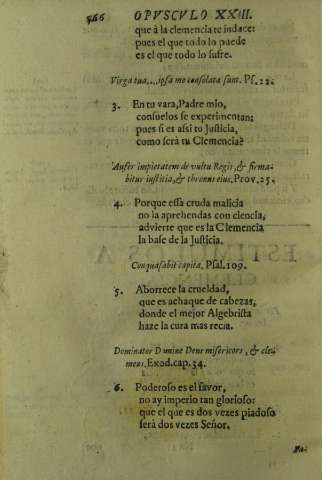 466 OPVSCVLO XXIII.
que à la clemencia te indace:
pues el que todo lo puede
es el que todo lo sufre.
Virga tua,.., ipsa me consolata sunt. Ps. 22.
3. En tu vara, Padre mio,
consuelos se experimentan;
pues si es assi tu Justicia,
como serà tu Clemencia?
Aufer impietatem de vultu Regis, & firma-
bitur iustitia, & thronus eius, Prov. 25.
4. Porque essa cruda malicia
no la aprehendas con ciencia,
advierte que es la Clemencia
la base de la Justicia.
Conquasabit capita, Psal. 109.
5. Aborrece la crueldad,
que es achaque de cabezas,
donde el mejor Algebrista
haze la cura mas recia.
Dominator Domine Deus misericors, & cle-
mens. Exod. cap. 34.
6. Poderoso es el favor,
no ay imperio tan glorioso:
que el que es dos vezes piadoso
serà dos vezes Señor.